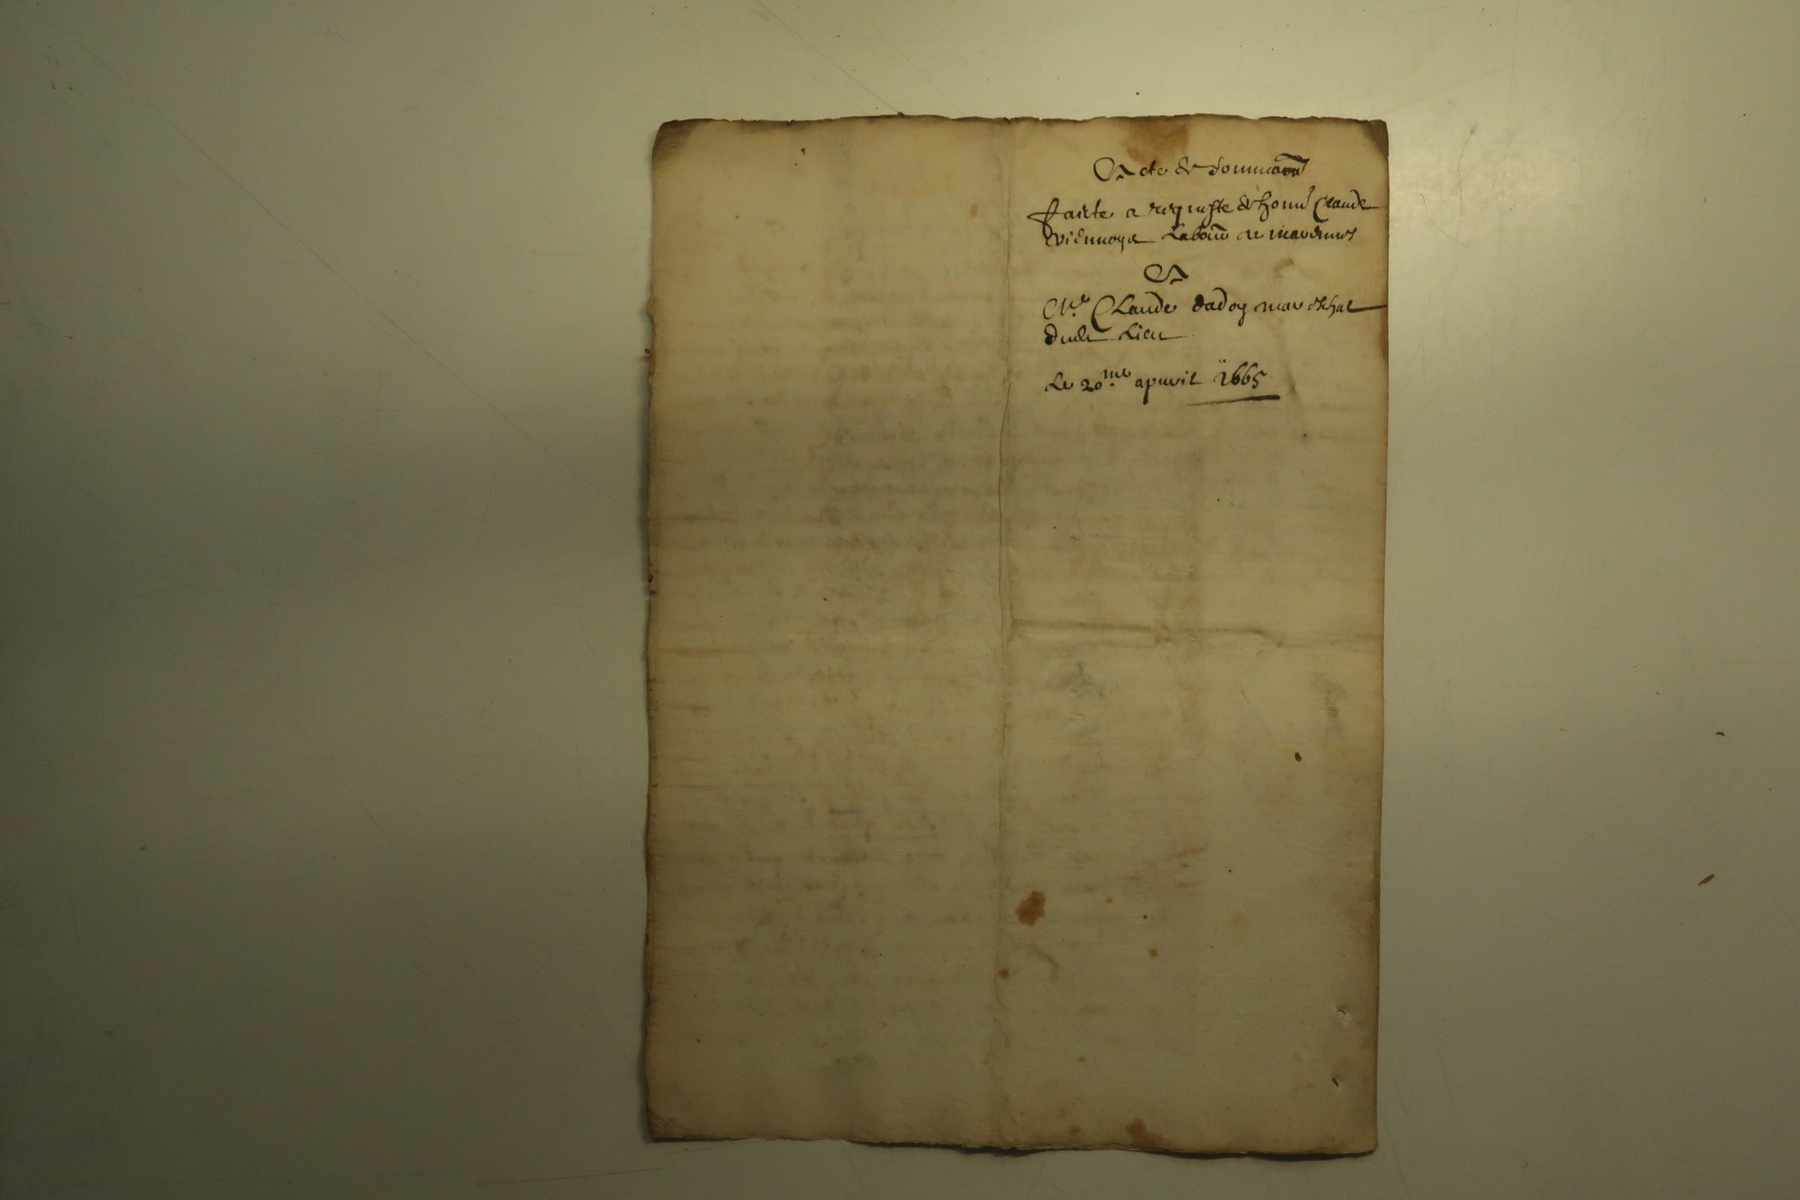 Acte de sommaōn
faicte a requeste de hon̄ Claude
Viennoys Laboūr de
A
Mᵉ. CLaude dadoy mareschal
dudt Lieu
Le 20.me apuril 1665